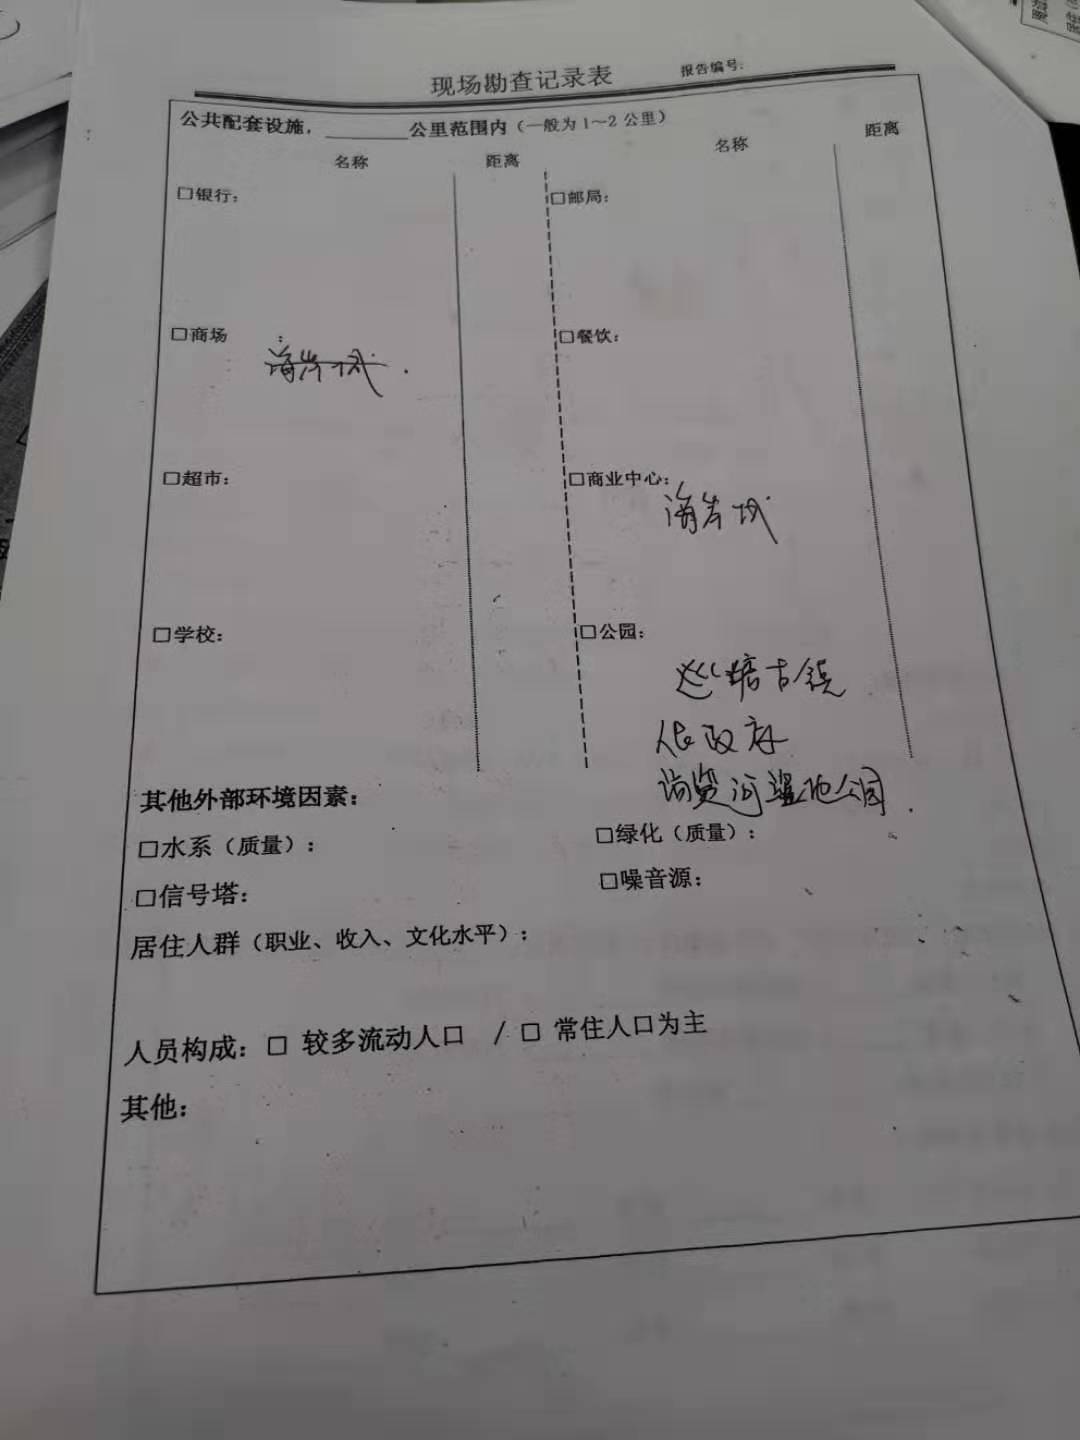 现场勘查记录表 报告编号:
公共配套设施，______公里范围内（一般为1～2公里）
名称 距离 名称 距离
□银行： □邮局：
□商场 ： □餐饮：
海岸城.
□超市： □商业中心：
海岸城
□学校： □公园：
塘古镇
政府
河湿地公园.
其他外部环境因素：
□水系（质量）： □绿化（质量）：
□信号塔： □噪音源：
居住人群（职业、收入、文化水平）：
人员构成：□ 较多流动人口 / □ 常住人口为主
其他：